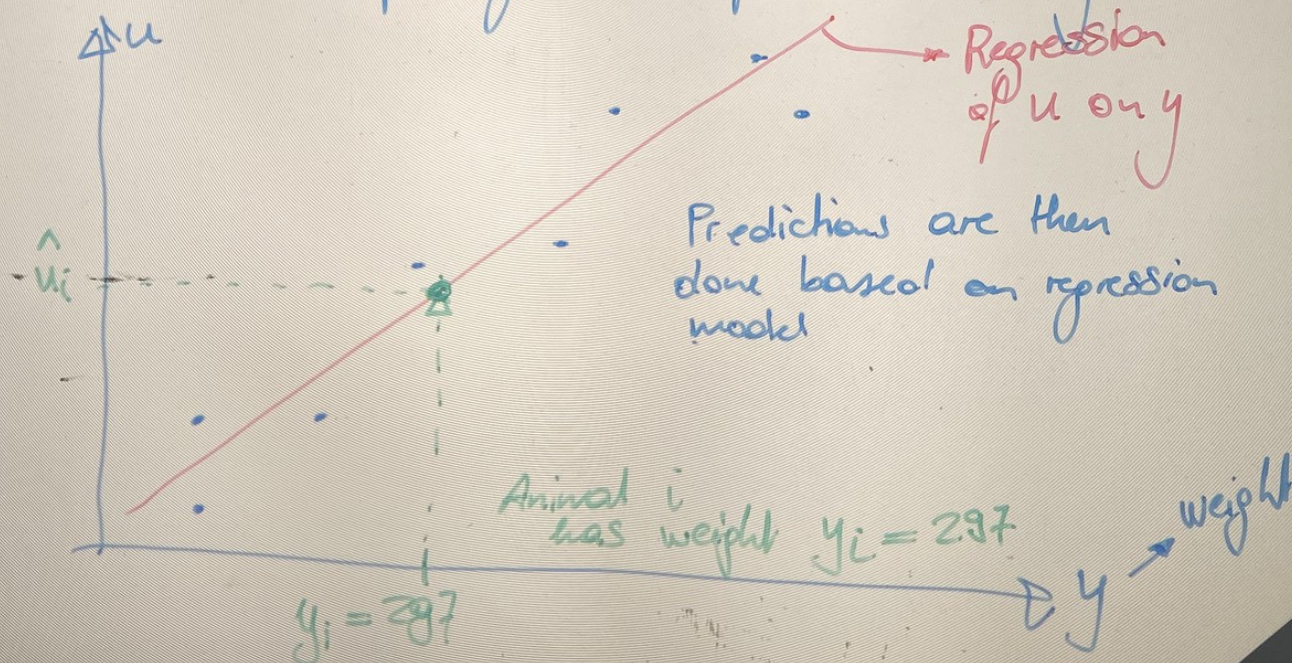 u
Regression
of u on y
Predictions are then
done based on regression
model
ûi
Animal i
has weight yi = 297
weight
y
yi = 297